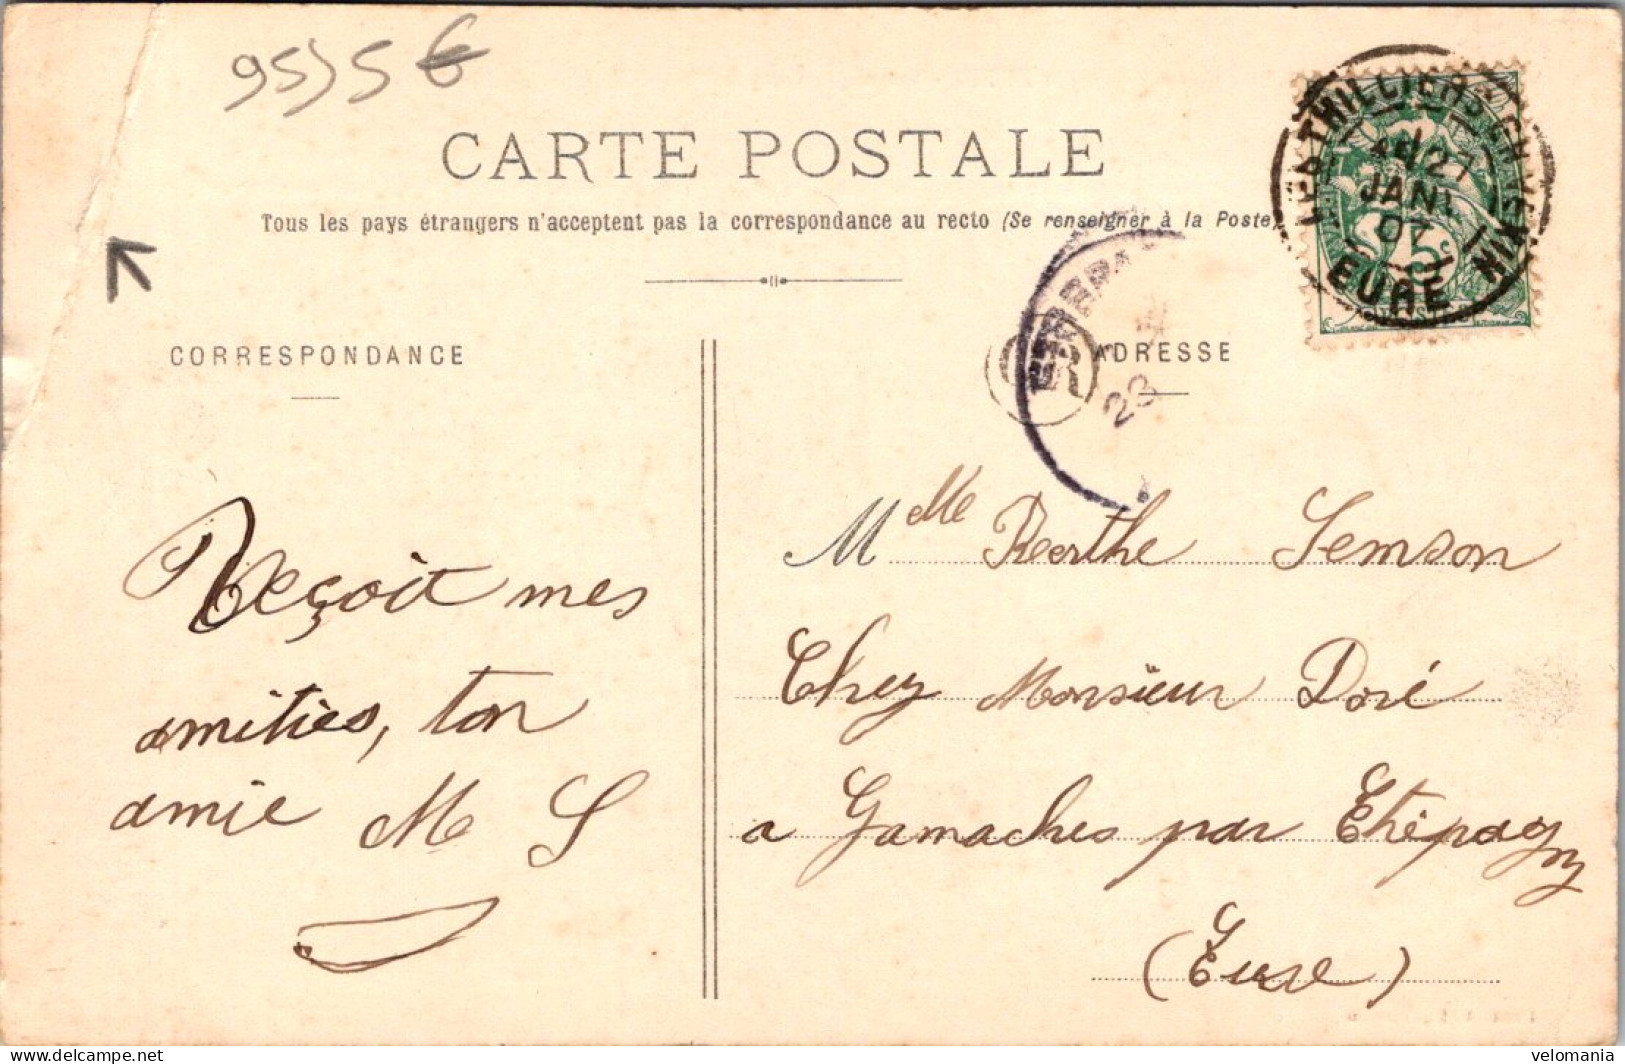 95)5 €
CARTE POSTALE
Tous les pays étrangers n'acceptent pas la correspondance au recto (Se renseigner à la Poste)
CORRESPONDANCE
ADRESSE
27
JANV
07
EURE
5c
OR
23
Reçoit mes
amitiés, ton
amie M S
Mlle Berthe Semson
Chez Monsieur Doré
a Gamaches par Ethépagny
(Eure)
delcampe.net
velomania